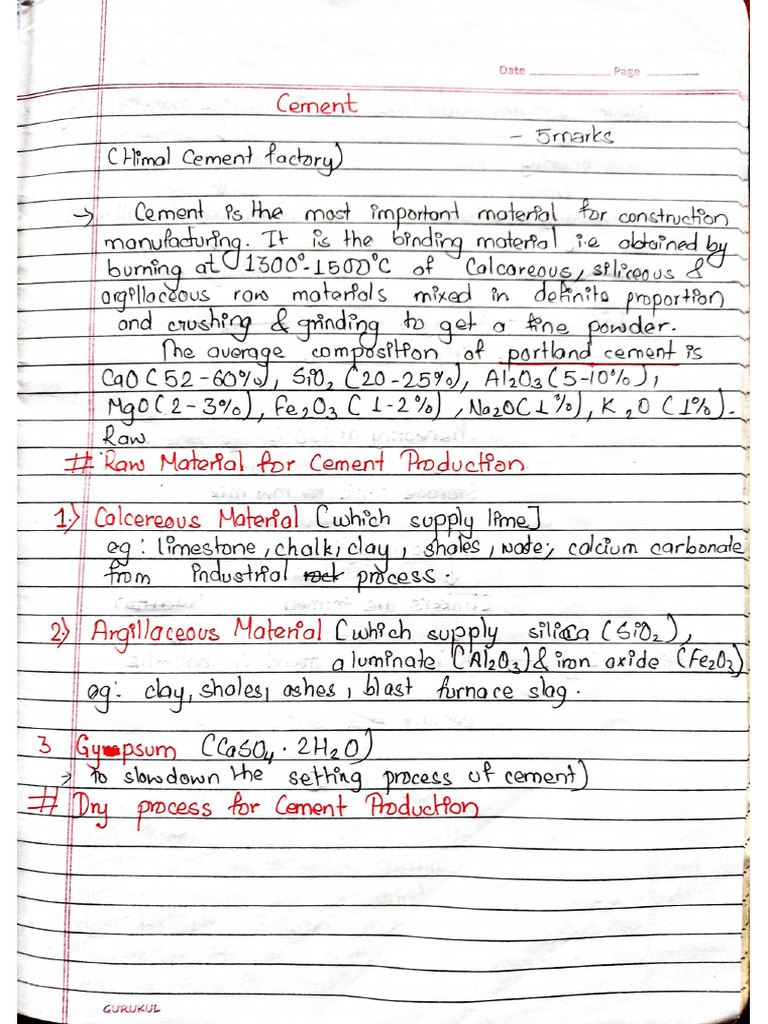 Date Page
Cement
- 5marks
(Himal Cement factory)
→ Cement is the most important material for construction
manufacturing. It is the binding material i.e obtained by
burning at 1300°-1500°C of Calcareous, siliceous &
argillaceous raw materials mixed in definite proportion
and crushing & grinding to get a fine powder.
The average composition of portland cement is
CaO (52-60%), SiO₂ (20-25%), Al₂O₃ (5-10%),
MgO (2-3%), Fe₂O₃ (1-2%), Na₂O (1%), K₂O (1%).
Raw
# Raw Material for Cement Production
1.) Calcereous Material [which supply lime]
eg: limestone, chalk, clay, shales, calcium carbonate
from industrial process.
2.) Argillaceous Material [which supply silica (SiO₂),
aluminate (Al₂O₃) & iron oxide (Fe₂O₃)
eg: clay, shales, ashes, blast furnace slag.
3 Gypsum (CaSO₄·2H₂O)
→ to slowdown the setting process of cement)
# Dry process for Cement Production
GURUKUL